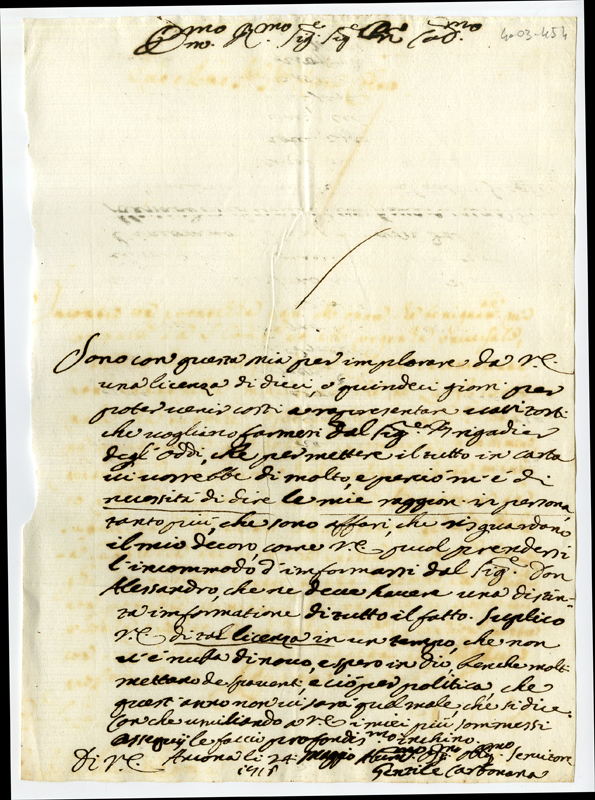 Em̃o R.mo Sig.re Sig.re Pñe Col.mo
4-03-454
Sono con questa mia per implorare da V.E.
una licenza di dieci, ò quindeci giorni per
poter venir costì a rapresentare i varii torti
che vogliano farmesi dal Sig.e Brigadier
degl'Oddi, che per mettere il tutto in carta
vi vorrebbe di molto, e perciò m'è di
necessità di dire le mie raggion in persona,
tanto più, che sono affari, che risguardano
il mio decoro, come V.E. puol prendersi
l'incommodo d'informarsi dal Sig.e Don
Alessandro, che ne deve havere una distin-
ta informatione di tutto il fatto. Suplico
V.E. di tal licenza in un tempo, che non
v'è nulla di novo, e spero in Dio, benche molti
mettano de spaventi, e ciò per politica, che
quest'anno non vi sarà quel male, che si dice.
Con che umiliando a V.E. i miei più sommessi
ossequij le faccio profondis.mo inchino
Di V.E. Ancona li 24 Maggio
1715
Servitore
Gentile Carbonara